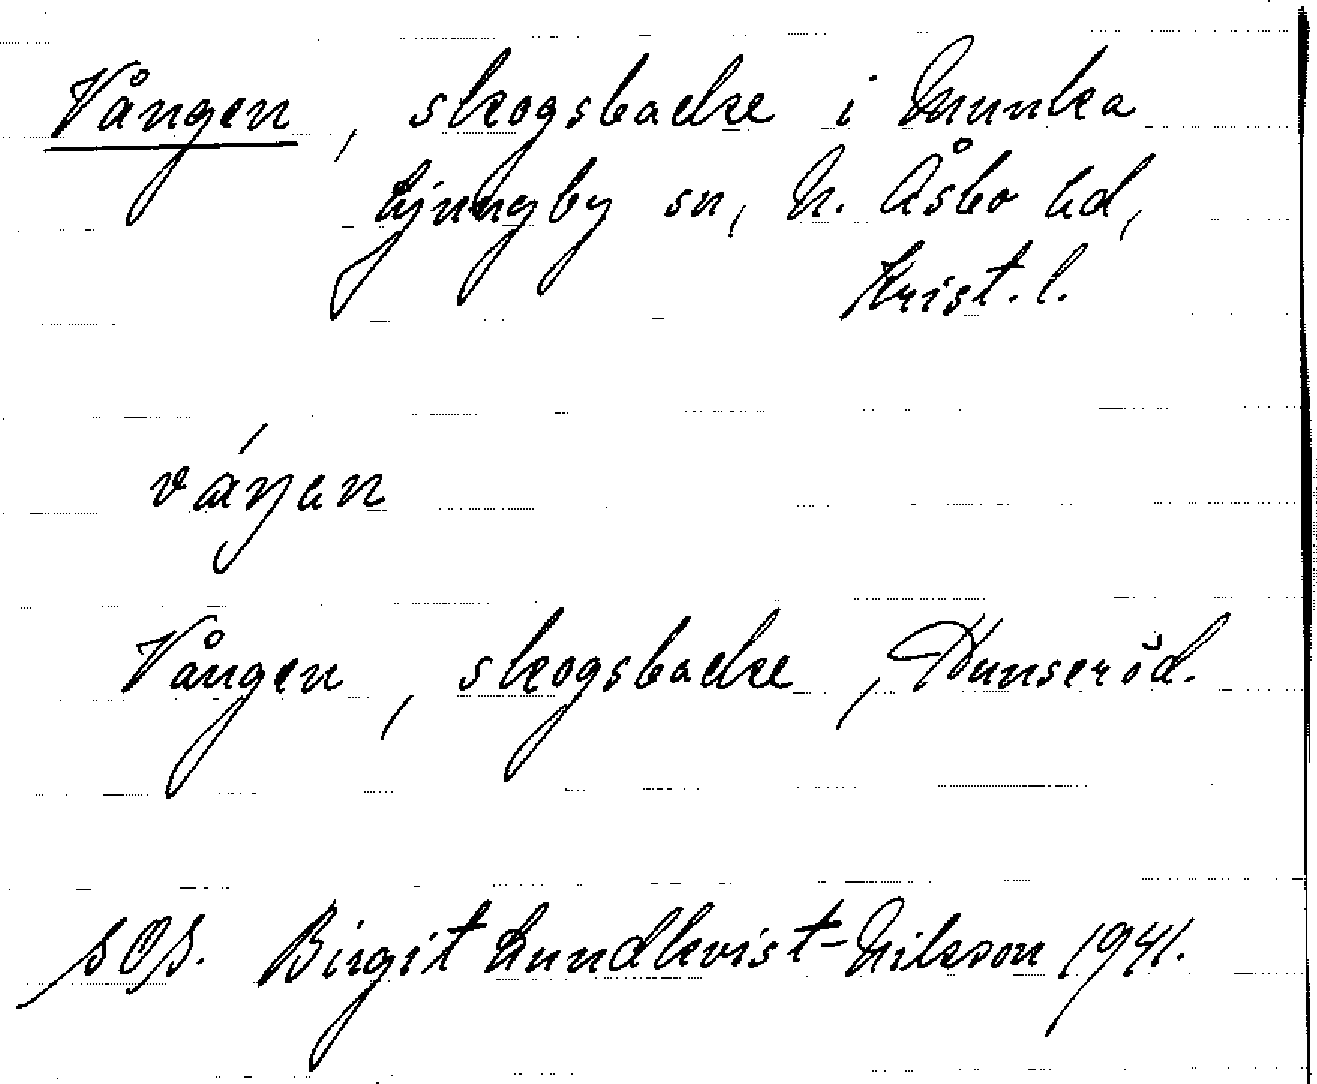 Vången, skogsbacke i Munka
Ljungby sn, N. Åsbo hd,
Krist. l.
váŋan
Vången, skogsbacke, Dunseröd.
SOS. Birgit Lundkvist-Nilsson 1941.